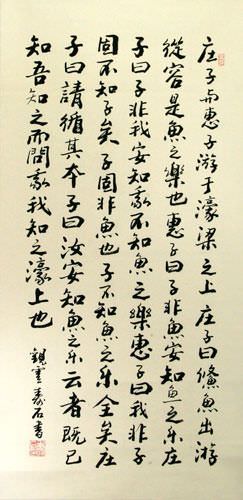 庄子与惠子游于濠梁之上庄子曰鯈魚出游
從容是魚之樂也惠子曰子非魚安知魚之乐庄
子曰子非我安知我不知魚之樂惠子曰我非子
固不知子矣子固非魚也子不知魚之乐全矣庄
子曰請循其本子曰汝安知魚之乐云者既已
知吾知之而問我我知之濠上也
石書